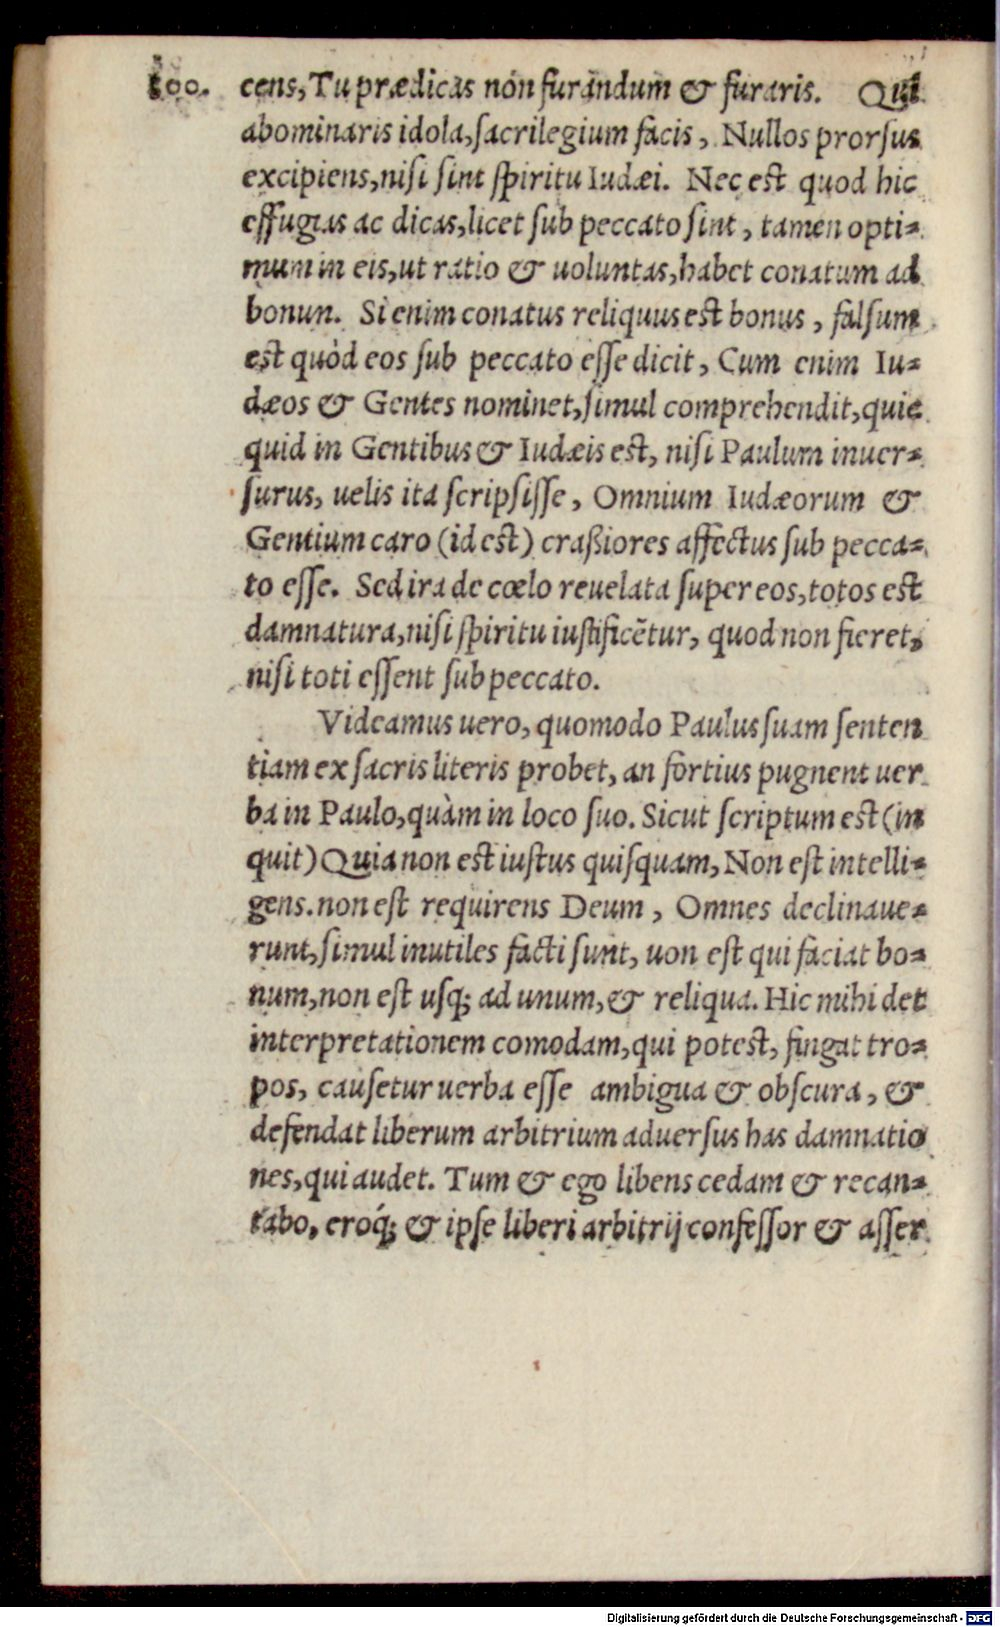 500. cens, Tu prædicas non furandum & furaris. Qui
abominaris idola, sacrilegium facis, Nullos prorsus
excipiens, nisi sint spiritu Iudæi. Nec est quod hic
effugias ac dicas, licet sub peccato sint, tamen opti=
mum in eis, ut ratio & uoluntas, habet conatum ad
bonun. Si enim conatus reliquus est bonus, falsum
est quòd eos sub peccato esse dicit, Cum enim Iu=
dæos & Gentes nominet, simul comprehendit, quic
quid in Gentibus & Iudæis est, nisi Paulum inuer=
surus, uelis ita scripsisse, Omnium Iudæorum &
Gentium caro (id est) craßiores affectus sub pecca=
to esse. Sed ira de cœlo reuelata super eos, totos est
damnatura, nisi spiritu iustificẽtur, quod non fieret,
nisi toti essent sub peccato.
Videamus uero, quomodo Paulus suam senten
tiam ex sacris literis probet, an fortius pugnent uer
ba in Paulo, quàm in loco suo. Sicut scriptum est (in
quit) Quia non est iustus quisquam, Non est intelli=
gens. non est requirens Deum, Omnes declinaue=
runt, simul inutiles facti sunt, uon est qui faciat bo=
num, non est usq; ad unum, & reliqua. Hic mihi det
interpretationem comodam, qui potest, fingat tro=
pos, causetur uerba esse ambigua & obscura, &
defendat liberum arbitrium aduersus has damnatio
nes, qui audet. Tum & ego libens cedam & recan=
tabo, eroq́; & ipse liberi arbitrij confessor & asser
Digitalisierung gefördert durch die Deutsche Forschungsgemeinschaft - DFG